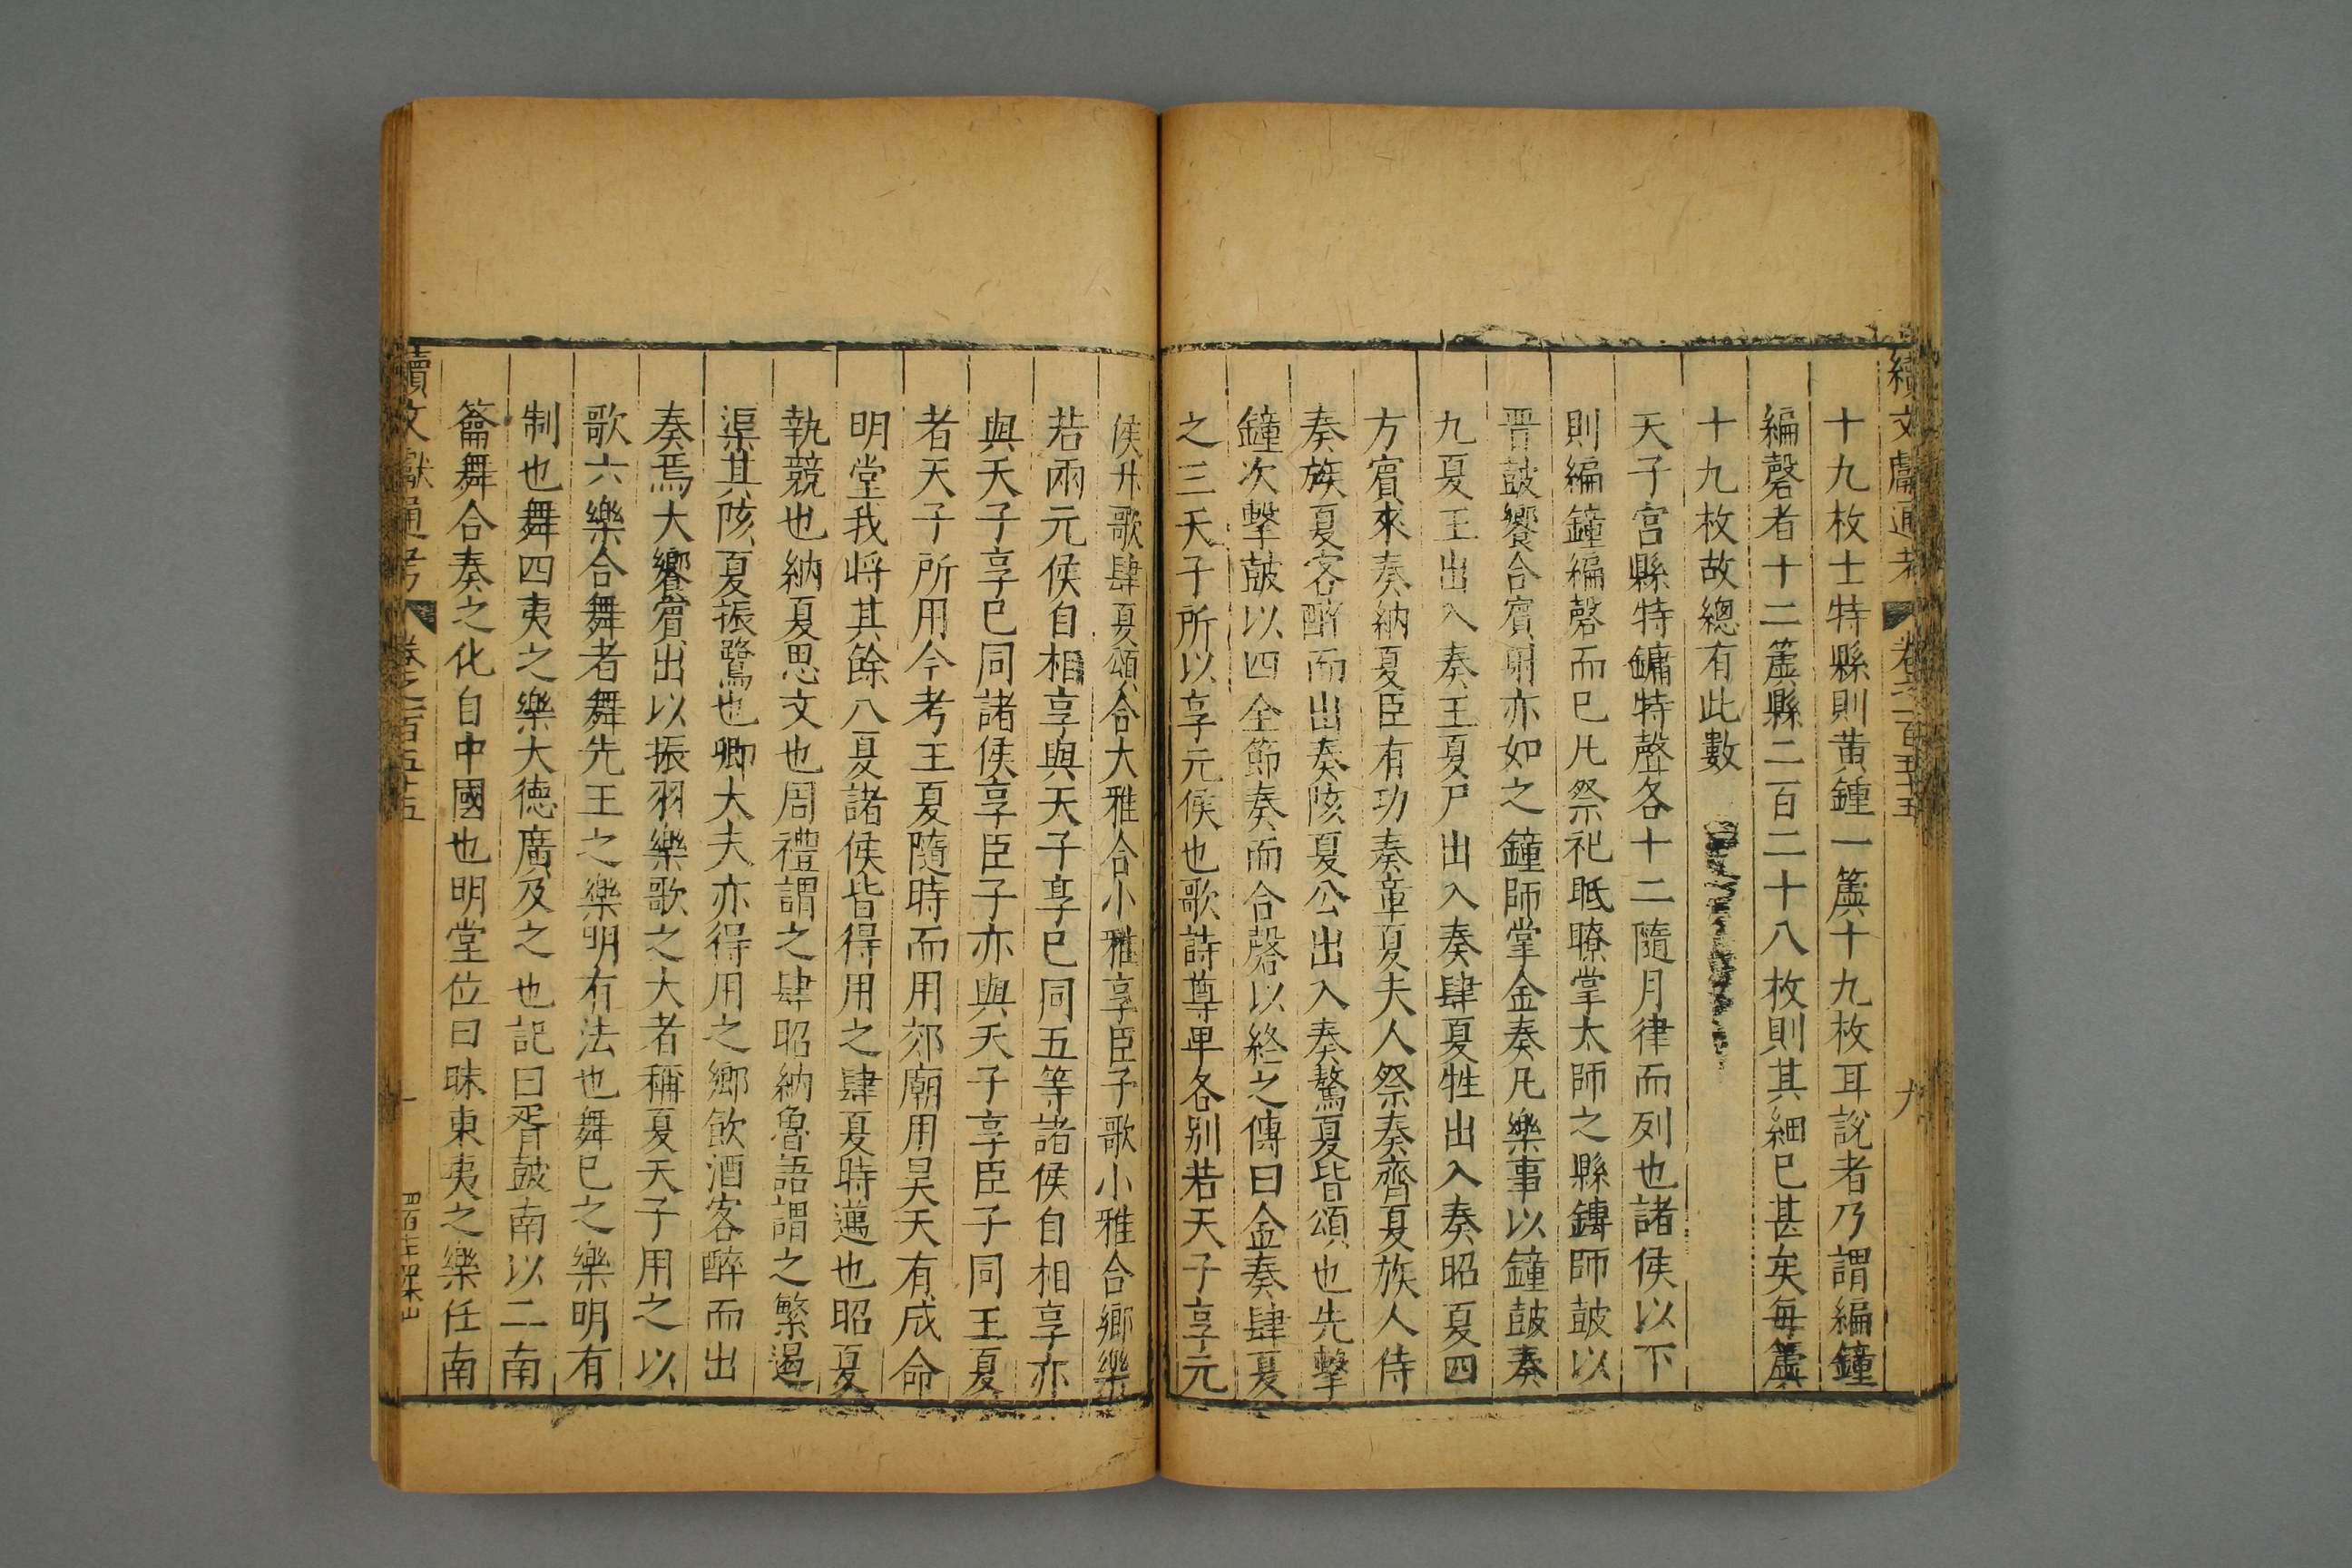 續文獻通考 卷之一百五十五 九
十九枚士特縣則黃鍾一簴十九枚耳說者乃謂編鐘
編磬者十二簴縣二百二十八枚則其細已甚矣每簴
十九枚故總有此數
天子宮縣特鏞特磬各十二隨月律而列也諸侯以下
則編鐘編磬而已凡祭祀眡瞭掌太師之縣鎛師鼓以
晋鼓饗合賓射亦如之鐘師掌金奏凡樂事以鐘鼓奏
九夏王出入奏王夏尸出入奏肆夏牲出入奏昭夏四
方賓來奏納夏臣有功奏章夏夫人祭奏齊夏族人侍
奏族夏客醉而出奏陔夏公出入奏驁夏皆頌也先擊
鐘次擊鼓以四全節奏而合磬以終之傳曰金奏肆夏
之三天子所以享元侯也歌詩尊卑各别若天子享元
侯升歌肆夏頌合大雅合小雅享臣子歌小雅合鄉樂
若兩元侯自相享與天子享已同五等諸侯自相享亦
與天子享已同諸侯享臣子亦與天子享臣子同王夏
者天子所用今考王夏隨時而用郊廟用昊天有成命
明堂我将其餘八夏諸侯皆得用之肆夏時邁也昭夏
執競也納夏思文也周禮謂之肆昭納魯語謂之繁遏
渠其陔夏振鷺也卿大夫亦得用之鄉飲酒客醉而出
奏焉大饗賓出以振羽樂歌之大者稱夏天子用之以
歌六樂合舞者舞先王之樂明有法也舞已之樂明有
制也舞四夷之樂大德廣及之也記曰胥鼓南以二南
籥舞合奏之化自中國也明堂位曰昧東夷之樂任南
續文獻通考 卷之一百五十五